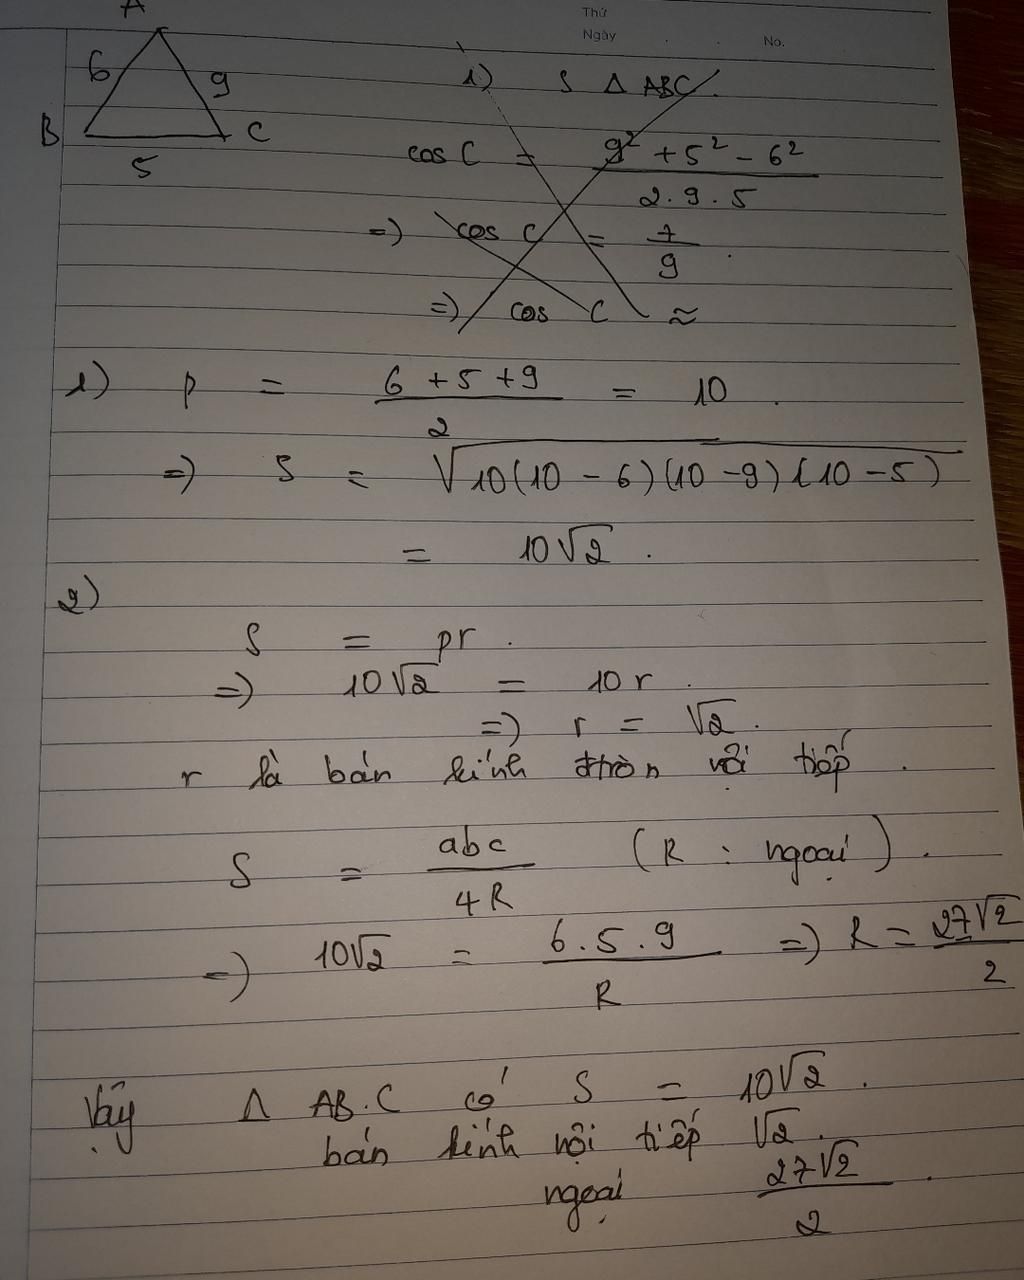 Thứ
Ngày . . No.
A
6 9
B C
5
1) S Δ ABC.
cos C = 9² + 5² - 6² / 2.9.5
=> cos C = 7/9.
=> cos C ≈
1) p = 6 + 5 + 9 / 2 = 10.
=> S = √10(10 - 6)(10 - 9)(10 - 5)
= 10√2.
2)
S = pr.
=> 10√2 = 10 r.
=> r = √2.
r là bán kính đtròn nội tiếp.
S = abc / 4R (R : ngoại).
=> 10√2 = 6.5.9 / R => R = 27√2 / 2
Vậy Δ AB.C có S = 10√2.
bán kính nội tiếp √2.
ngoại 27√2 / 2.